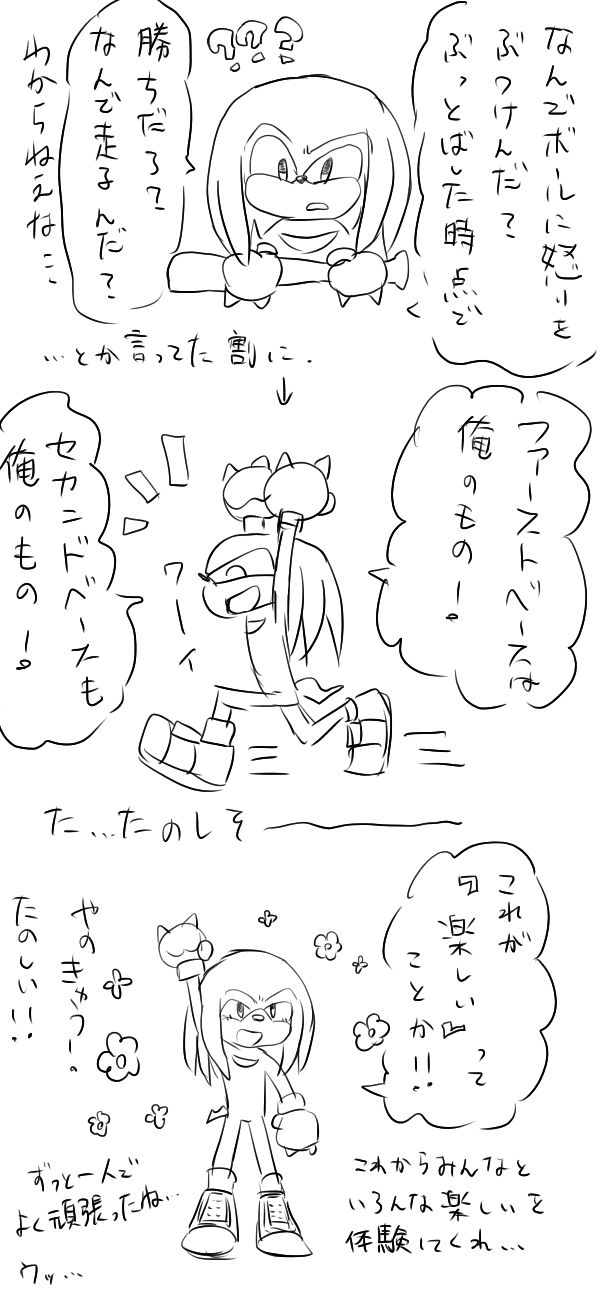 なんでボールに怒りを
ぶつけんだ？
ぶっとばした時点で
???
勝ちだろ？
なんで走るんだ？
わからねえな…
…とか言ってた割に.
↓
ファーストベースは
俺のもの－!。
ワーイ
セカンドベースも
俺のもの－!。
た…たのしそ――
これが
『楽しい』って
ことか!!
やのきゅう－!。
たのしい!!
これからみんなと
いろんな楽しいを
体験してくれ…
ずっと一人で
よく頑張ったね…
ウッ…